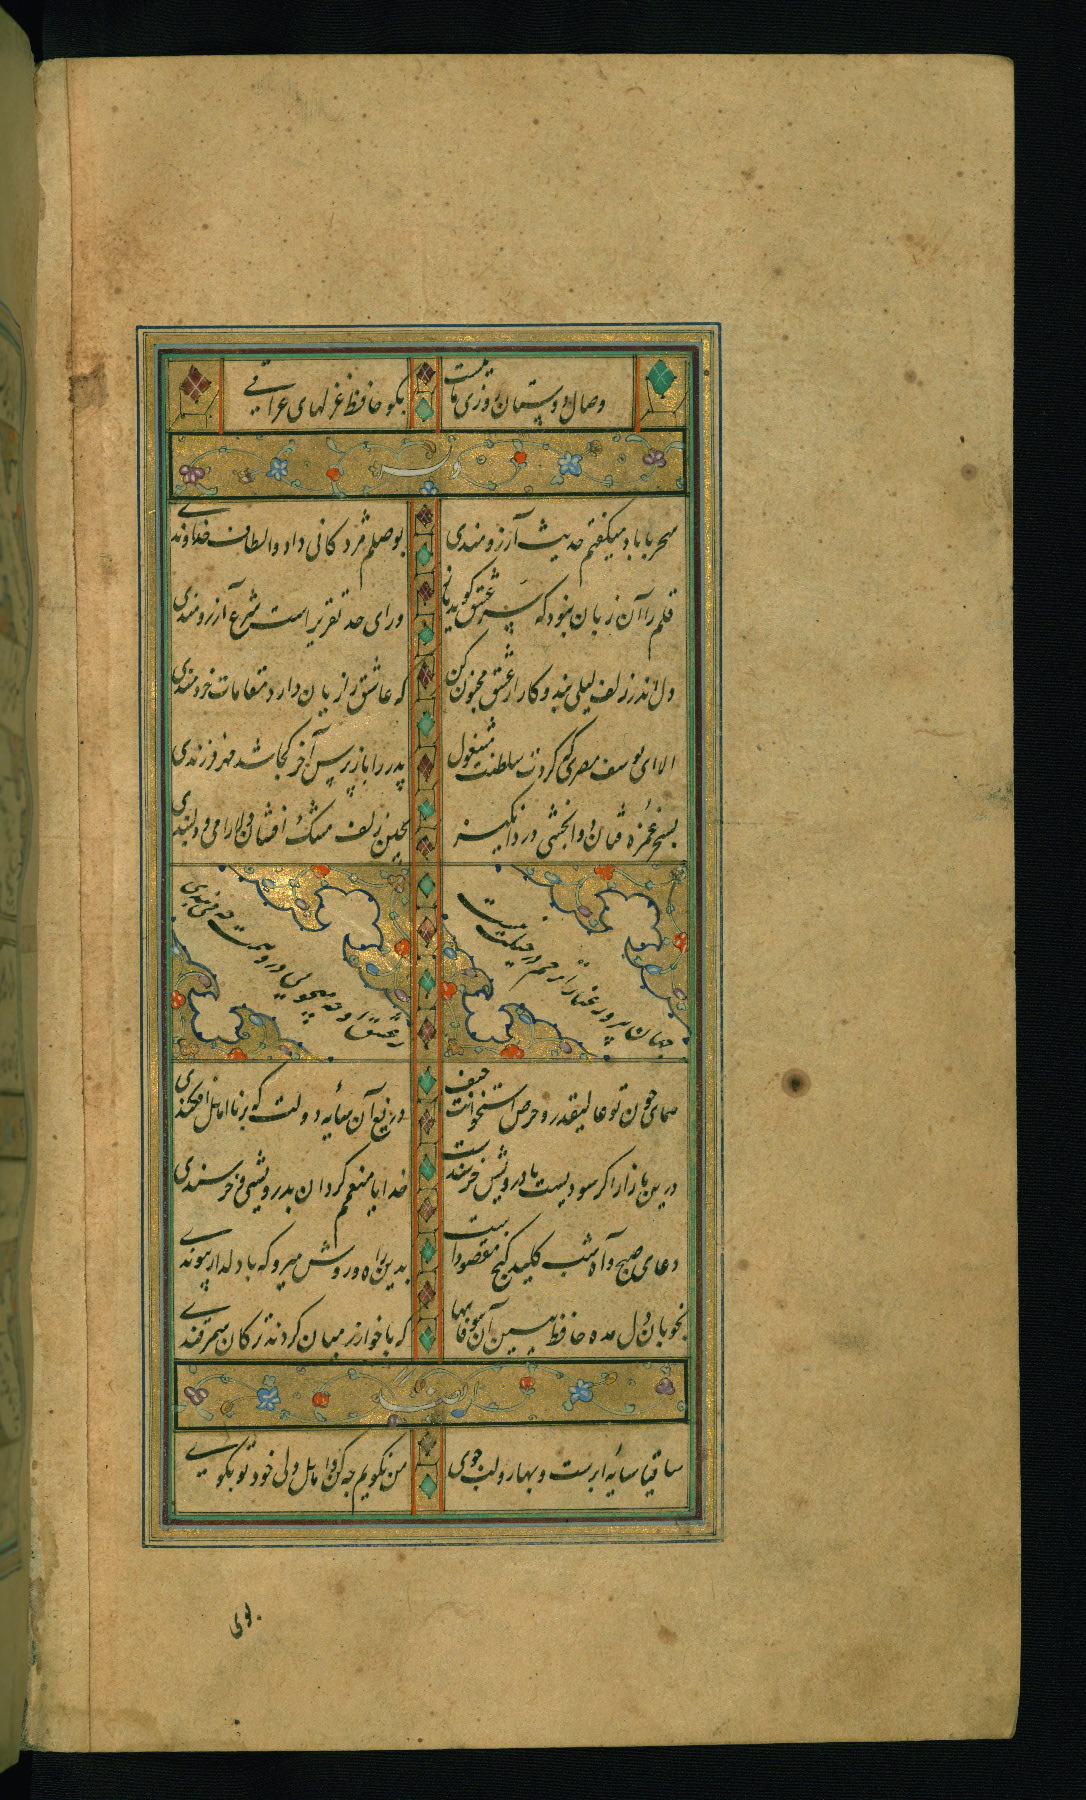 وصال دوستان روزی ما نیست بگو حافظ غزلهای عراقی
وله
سحر با باد میگفتم حدیث آرزومندی بوصلم مژدکانی داد والطاف خداوندی
قلم را آن زبان نبود که سر عشق گوید باز ورای حد تقریر است شرح آرزومندی
دل اندر زلف لیلی بند و کار از عشق مجنون کن که عاشق را زیان دارد مقامات خردمندی
الا ای یوسف مصری که کردت سلطنت مشغول پدر را باز پرس آخر کجا شد مهر فرزندی
بسحر غمزه فتان دوا بخشی و درد انگیز بچین زلف مشک افشان دلارامی و دلبندی
جهان پیر رعنا را ترحم در جبلت نیست ز عشق او چه میجویی در او همت چه میبندی
همای چون تو عالیقدر و حرص استخوانت حیف دریغ آن سایه دولت که بر نا اهل افکندی
درین بازار اگر سودیست با درویش خرسندست خدایا منعمم گردان بدرویشی و خرسندی
دعای صبح و آه شب کلید گنج مقصودست بدین راه و روش میرو که با دلدار پیوندی
بخوبان دل مده حافظ ببین آن بیوفاییها که با خوارزمیان کردند ترکان سمرقندی
ایضا له
ساقیا سایه ابرست و بهار و لب جوی من نگویم چه کن ار اهل دلی خود تو بگوی
بوی